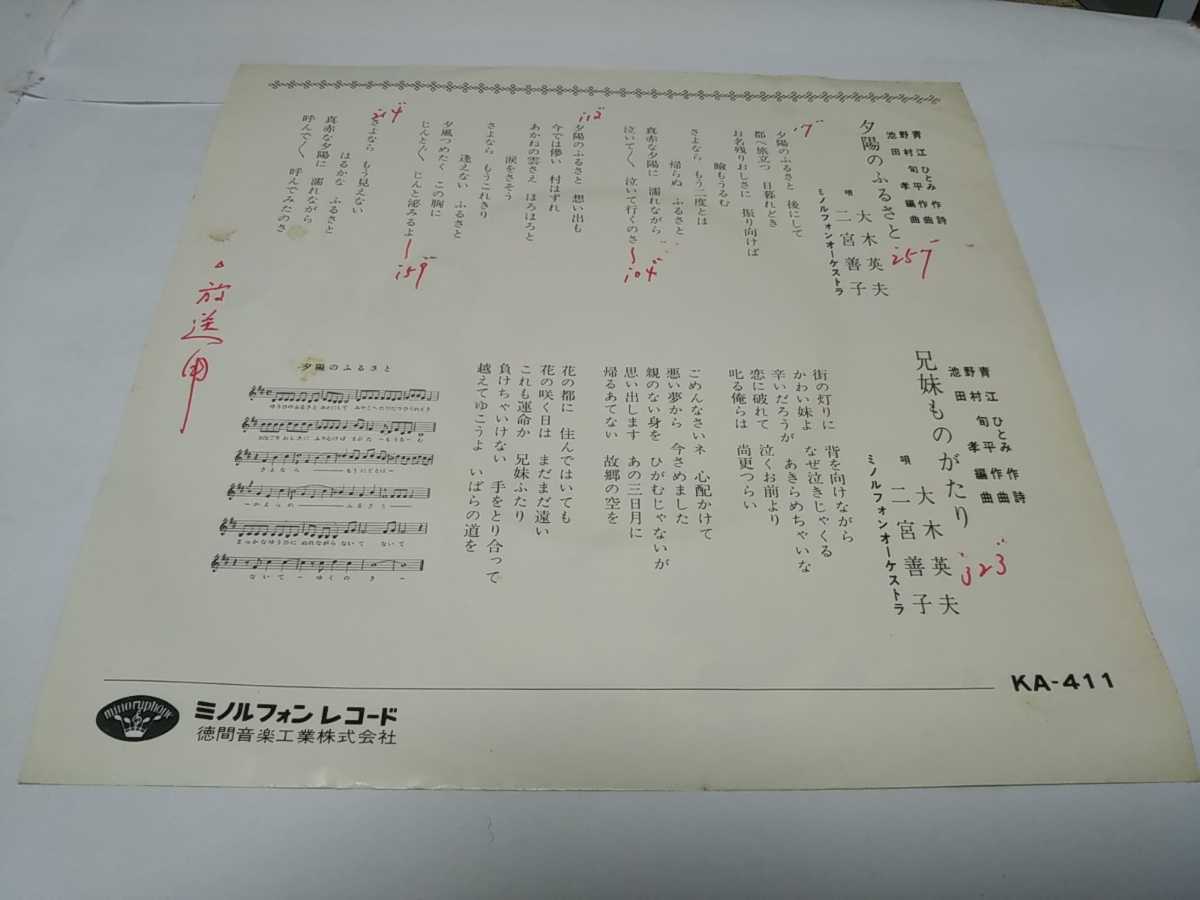 夕陽のふるさと
青江ひとみ作詩
野村旬平作曲
池田孝編曲
唄 大木英夫
二宮善子
ミノルフォンオーケストラ
2'57"
17"
夕陽のふるさと 後にして
都へ旅立つ 日暮れどき
お名残りおしさに 振り向けば
瞼もうるむ
さよなら もう二度とは
帰らぬ ふるさと
真赤な夕陽に 濡れながら
泣いて〱 泣いて行くのさ
1'04"
1'12"
夕陽のふるさと 想い出も
今では儚い 村はずれ
あかねの雲さえ ほろほろと
涙をさそう
さよなら もうこれきり
逢えない ふるさと
夕風つめたく この胸に
じんと〱 じんと泌みるよ
1'59"
2'14"
さよなら もう見えない
はるかな ふるさと
真赤な夕陽に 濡れながら
呼んで〱 呼んでみたのさ
放送用
兄妹ものがたり
青江ひとみ作詩
野村旬平作曲
池田孝編曲
唄 大木英夫
二宮善子
ミノルフォンオーケストラ
3'23"
街の灯りに 背を向けながら
かわい妹よ なぜ泣きじゃくる
辛いだろうが あきらめちゃいな
恋に破れて 泣くお前より
叱る俺らは 尚更つらい
ごめんなさいネ 心配かけて
悪い夢から 今さめました
親のない身を ひがむじゃないが
思い出します あの三日月に
帰るあてない 故郷の空を
花の都に 住んではいても
花の咲く日は まだまだ遠い
これも運命か 兄妹ふたり
負けちゃいけない 手をとり合って
越えてゆこうよ いばらの道を
夕陽のふるさと
ゆうひのふるさと あとにして みやこへたびだつひぐれどき
おなごりおしさに ふりむけば まぶた－もうる－む
さよなら－－－もうにどとは－
－かえらぬ－－－ふるさと－
まっかなゆうひに ぬれながらないて ないて
ないて－ゆくのさ－
KA-411
minoruphone
ミノルフォン レコード
徳間音楽工業株式会社